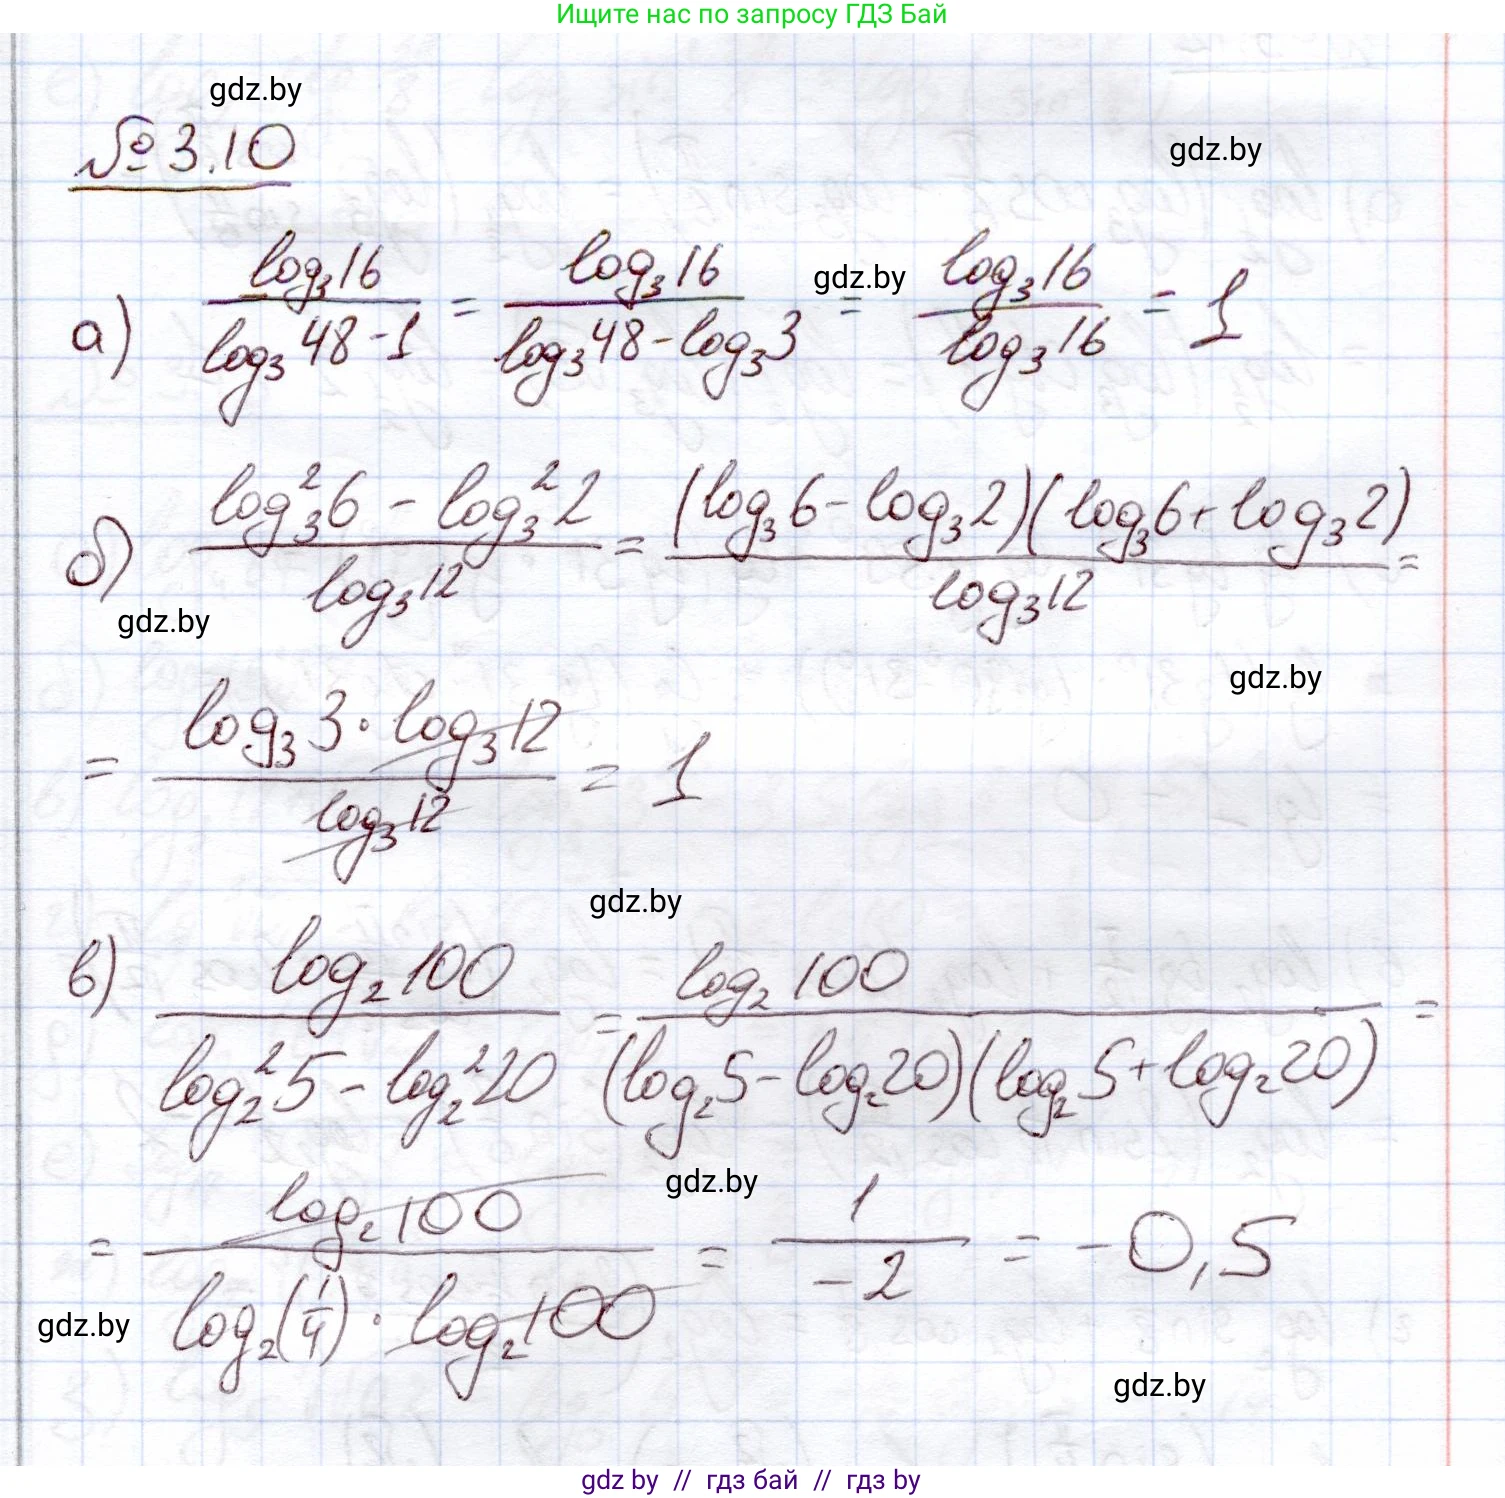 Ищите нас по запросу ГДЗ Бай
gdz.by
№ 3.10
gdz.by
а) log₃16 / (log₃48 - 1) = log₃16 / (log₃48 - log₃3) = log₃16 / log₃16 = 1
gdz.by
б) (log₃²6 - log₃²2) / log₃12 = (log₃6 - log₃2)(log₃6 + log₃2) / log₃12 =
gdz.by
gdz.by
= log₃3 · log₃12 / log₃12 = 1
gdz.by
в) log₂100 / (log₂²5 - log₂²20) = log₂100 / (log₂5 - log₂20)(log₂5 + log₂20) =
gdz.by
= log₂100 / log₂(1/4) · log₂100 = 1 / -2 = -0,5
gdz.by
gdz.by
gdz by // гдз бай // гдз by